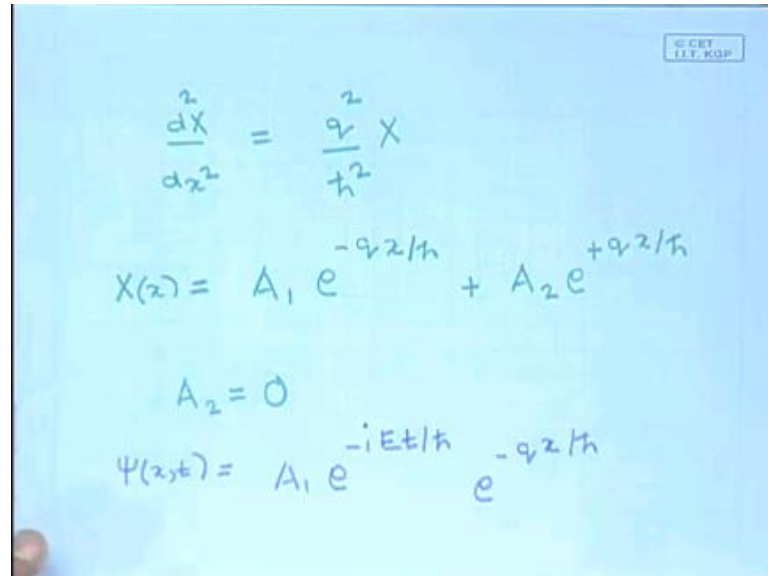 © CET
I.I.T. KGP
d²X/dx² = q²/ħ² X
X(x) = A₁ e^{-qx/ħ} + A₂ e^{+qx/ħ}
A₂ = 0
Ψ(x,t) = A₁ e^{-iEt/ħ} e^{-qx/ħ}